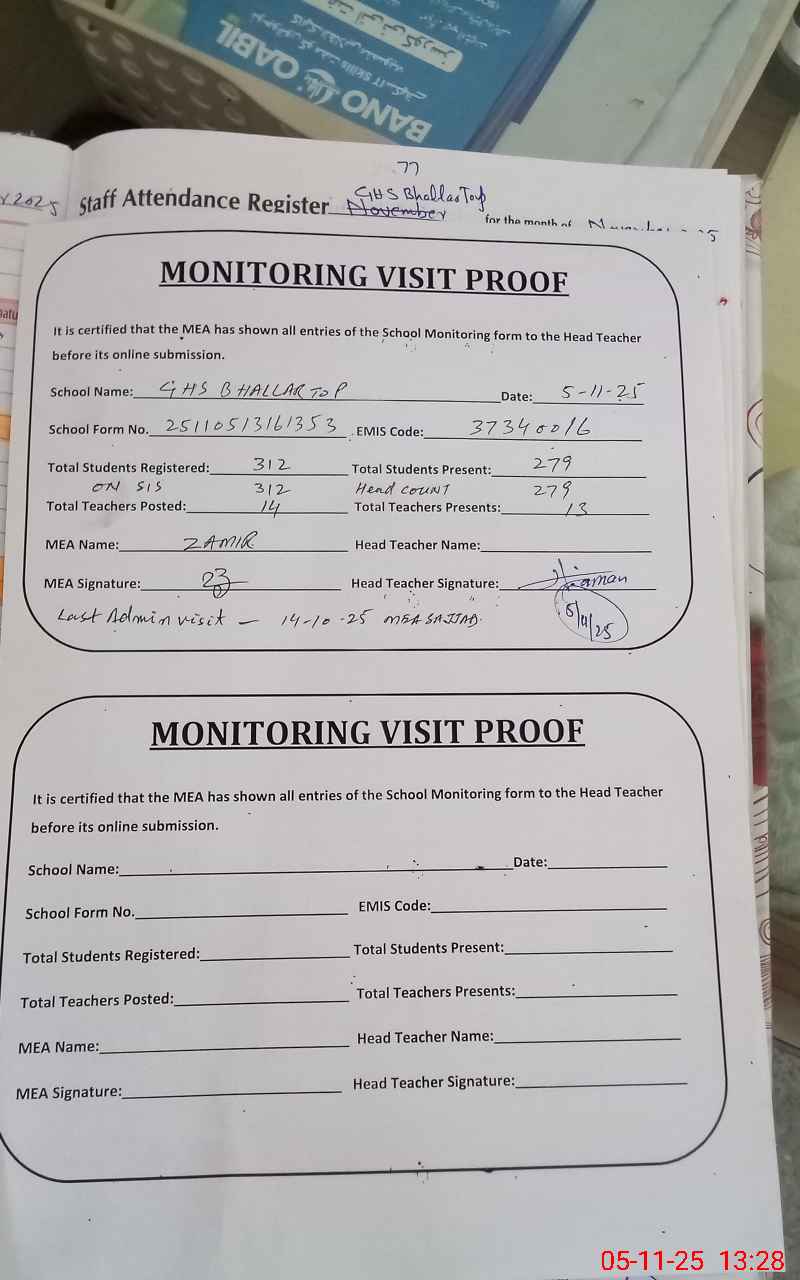 BANO QABIL
77
2025 Staff Attendance Register GHS Bhallar Top November for the month of
MONITORING VISIT PROOF
It is certified that the MEA has shown all entries of the School Monitoring form to the Head Teacher
before its online submission.
School Name: GHS BHALLAR TOP Date: 5-11-25
School Form No. 25110513161353 EMIS Code: 37340016
Total Students Registered: 312 Total Students Present: 279
ON SIS 312 Head COUNT 279
Total Teachers Posted: 14 Total Teachers Presents: 13
MEA Name: ZAMIR Head Teacher Name:
MEA Signature: Head Teacher Signature:
Last Admin visit - 14-10-25 MEA SAJJAD.
5/11/25
MONITORING VISIT PROOF
It is certified that the MEA has shown all entries of the School Monitoring form to the Head Teacher
before its online submission.
School Name: Date:
School Form No. EMIS Code:
Total Students Registered: Total Students Present:
Total Teachers Posted: Total Teachers Presents:
MEA Name: Head Teacher Name:
MEA Signature: Head Teacher Signature:
05-11-25 13:28